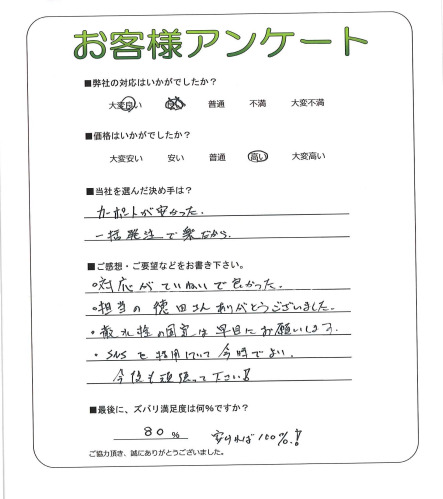 お客様アンケート
■弊社の対応はいかがでしたか?
大変良い 良い 普通 不満 大変不満
■価格はいかがでしたか?
大変安い 安い 普通 高い 大変高い
■当社を選んだ決め手は?
カーポートが安かった.
一括発注で楽だから.
■ご感想・ご要望などをお書き下さい。
・対応がていねいで良かった.
・担当の徳田さんありがとうございました.
・散水栓の固定は早目にお願いします.
・SNSを活用していて今時でよい.
今後も頑張って下さい!!
■最後に、ズバリ満足度は何%ですか?
80 % 安ければ100%!!
ご協力頂き、誠にありがとうございました。